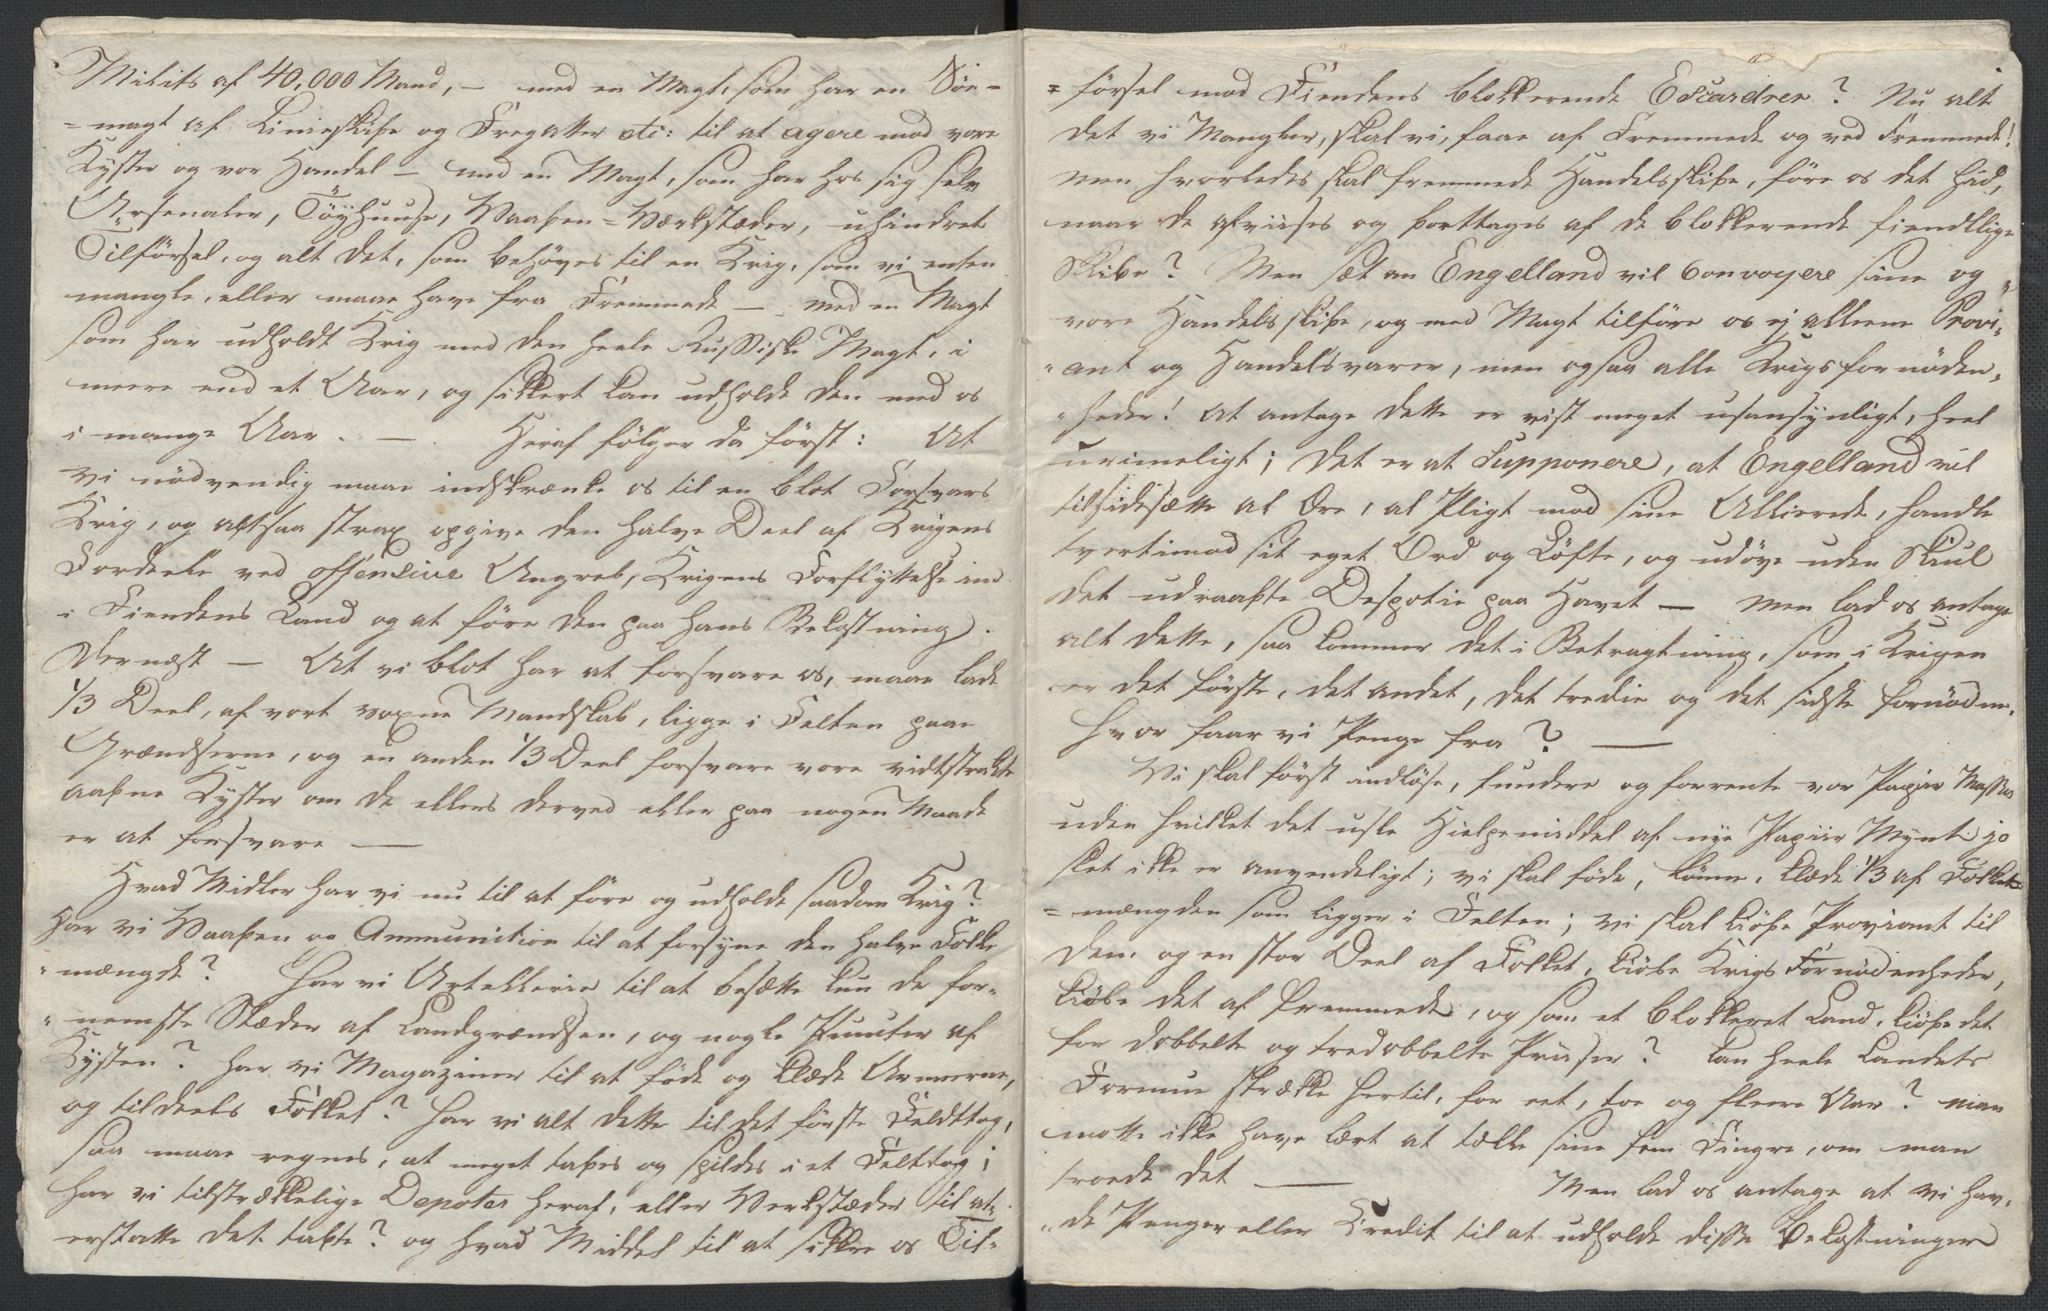 Milits af 40,000 Mand, – med en Magt, som har en Söe-
=magt af Linieskibe og Fregatter etc: til at agere mod vore
Kyster og vor Handel – med en Magt, som har hos sig selv
Arsenaler, Töyhuuse, Vaaben=Værkstæder, uhindret
Tilförsel, og alt det, som behöves til en Krig, som vi enten
mangle, eller maae have fra Fremmede – med en Magt
som har udholdt Krig med den heele Russiske Magt, i
meere end et Aar, og sikkert kan udholde den med os
i mange Aar. – Heraf fölger da först: At
vi nödvendig maae indskrænke os til en blot Forsvars
Krig, og altsaa strax opgive den halve Deel af Krigens
Fordeele ved offensive Angreb, Krigens Forflyttelse ind
i Fiendens Land og at före den paa hans Bekostning.
Dernæst – At vi blot har at forsvare os, maae lade
1/3 Deel, af vort voxne Mandskab, ligge i Felten paa
Grændserne, og en anden 1/3 Deel forsvare vore vidtstrakte
aabne Kyster om de ellers derved eller paa nogen Maade
er at forsvare –
Hvad Midler har vi nu til at före og udholde saadan Krig?
Har vi Vaaben og Ammunition til at forsyne den halve Folke
"mængde? Har vi Artellerie til at besætte kun de for-
"nemste Stæder af Landgrændsen, og nogle Puncter af
Kysten? har vi Magaziner til at föde og klæde Armeerne,
og tildeels Folket? Har vi alt dette til det förste Feldttog,
saa maae regnes, at meget tabes og spildes i et Felttog;
har vi tilstrækkelige Depoter heraf, eller Verkstæder til at
erstatte det tabte? og hvad Middel til at sikkre os Til-
=försel mod Fiendens blokkerende Escardrer? Nu alt
det vi Mangler, skal vi, faae af Fremmede og ved Fremmede!
men hvorledes skal fremmede Handelsskibe, före os det hid,
naar de afviises og borttages af de blokkerende fiendtlige
Skibe? Men sæt an Engelland vil Convoyere sine og
vore Handelsskibe, og med Magt tilföre os ej alleene Provi-
"ant og Handelsvarer, men ogsaa alle Krigsfornöden-
"heder! at antage dette er vist meget usansynligt, heel
urimeligt; det er at Supponere, at Engelland vil
tilsidesætte al Ære, al Pligt mod sine Allierede, handle
tvertimod sit eget Ord og Löfte, og udöve uden Skiul
det udraabte Despotie paa Havet – Men lad os antage
alt dette, saa kommer det i Betragtning, som i Krigen
er det förste, det andet, det tredie og det sidste fornödne.
Hvor faar vi Penge fra? –
Vi skal först indlöse, fundere og forrente vor Papiir Masse
uden hvilket det usle Hielpemiddel af nye Papiir Mynt jo
slet ikke er anvendeligt; vi skal föde, lönne, klæde 1/3 af Folke
=mængden som ligger i Felten; vi skal kiöbe Proviant til
den og en stor Deel af Folket, kiöbe Krigs Fornödenheder,
kiöbe det af Fremmede, og som et blokkeret Land, kiöbe det
for dobbelte og tredobbelte Priiser? kan heele Landets
Formue strække hertil, for eet, toe og fleere Aar? man
motte ikke have lært at tælle sine fem Fingre, om man
troede det – Men lad os antage at vi hav-
"de Penger eller Credit til at udholde disse Bekostninger